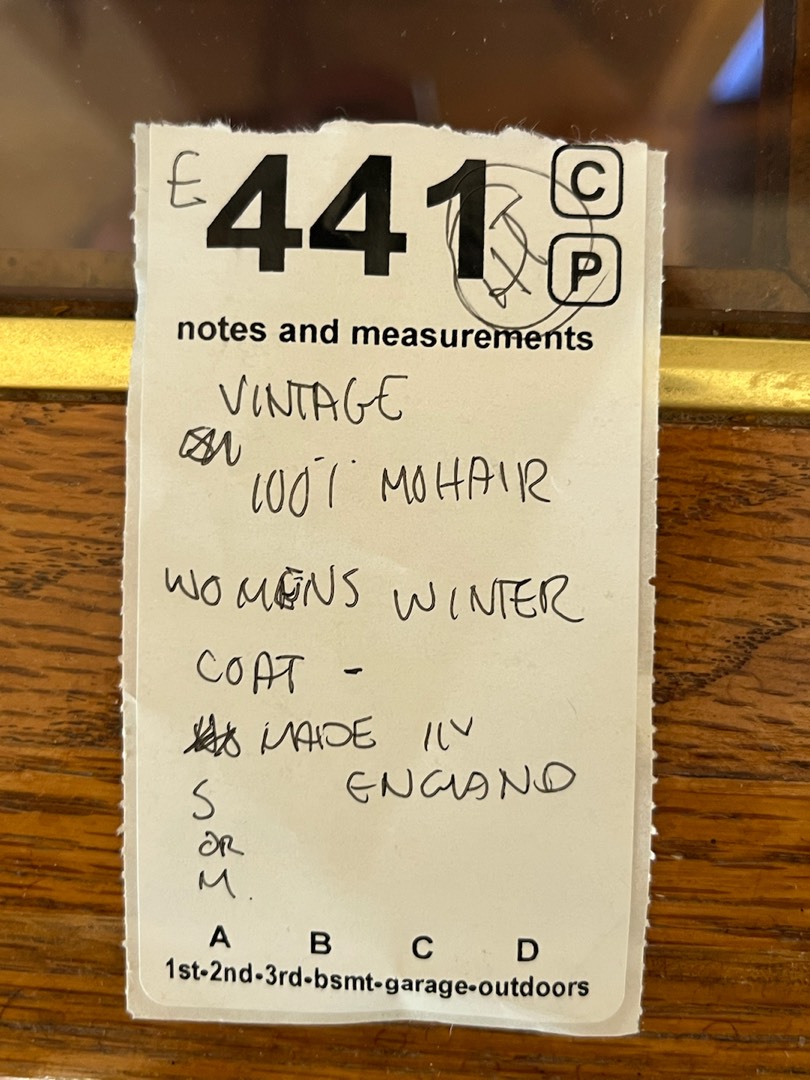 E 441 C
P
notes and measurements
VINTAGE
100% MOHAIR
WOMENS WINTER
COAT -
MADE IN
ENGLAND
S
OR
M.
A B C D
1st-2nd-3rd-bsmt-garage-outdoors